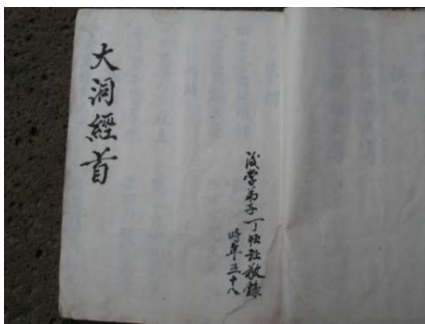 大洞經首
後學弟子丁 敬錄
時年五十八